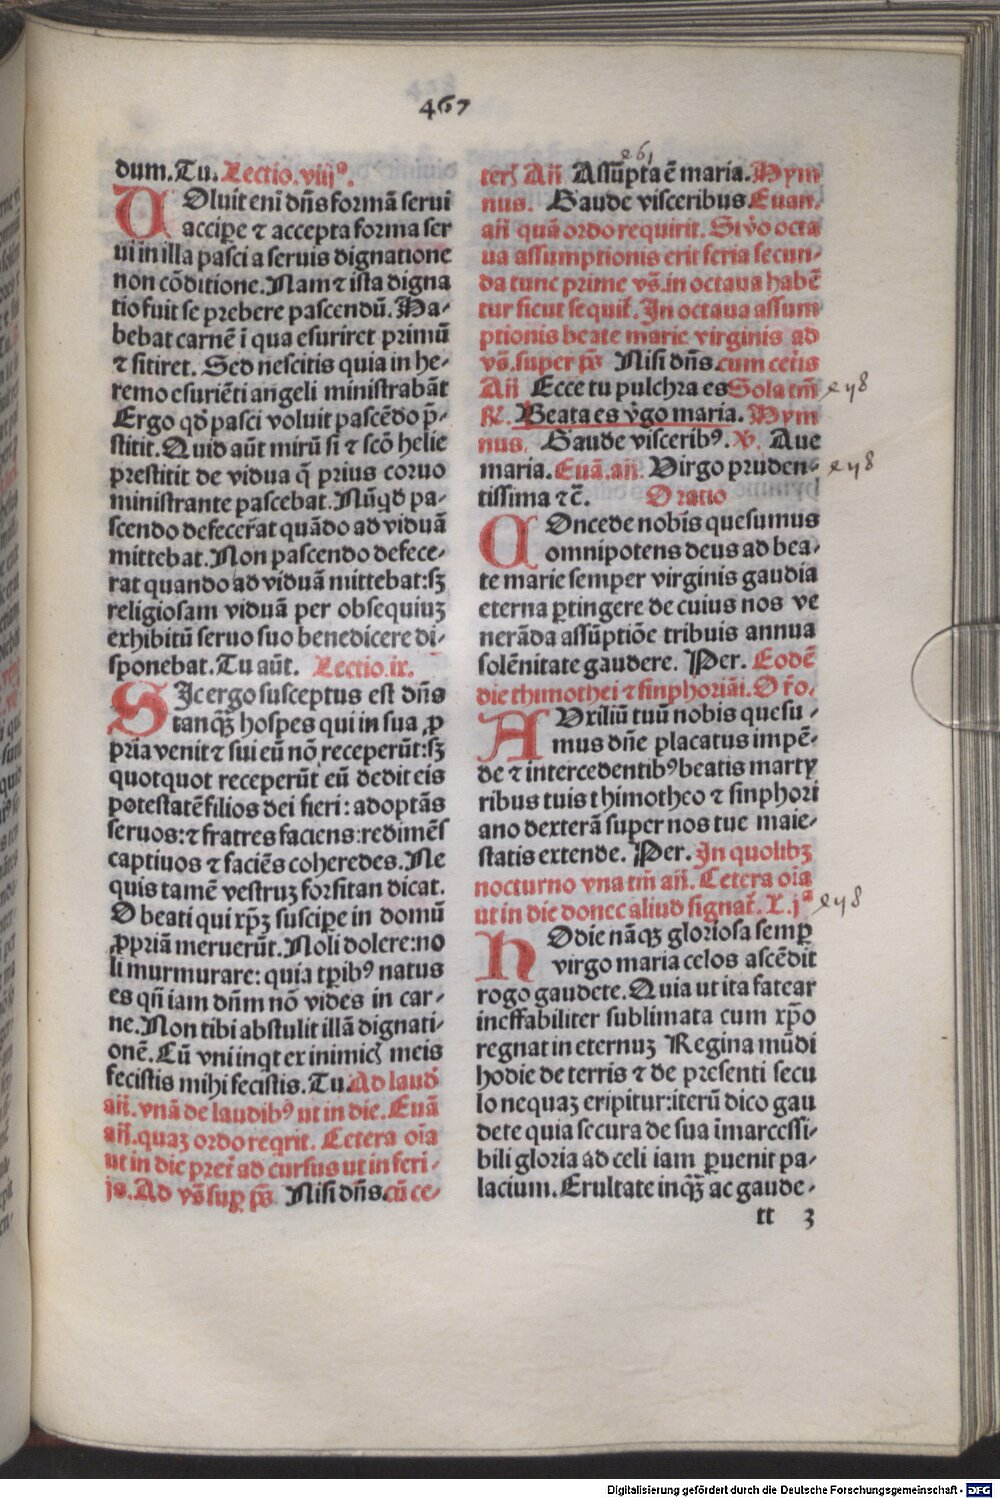 467
dum. Tu. Lectio. viijª.
VOluit eni dn̄s formā serui
accipe ⁊ accepta forma ser
ui in illa pasci a seruis dignatione
non cōditione. Nam ⁊ ista digna
tio fuit se prebere pascendū. Ha-
bebat carnē ī qua esuriret primū
⁊ sitiret. Sed nescitis quia in he-
remo esuriēti angeli ministrabāt
Ergo qd̓ pasci voluit pascēdo p̄-
stitit. Quid aūt mirū si ⁊ scō helie
prestitit de vidua q̄ prius coruo
ministrante pascebat. Nūqd̓ pa-
scendo defecer̄at quādo ad viduā
mittebat. Non pascendo defece-
rat quando ad viduā mittebat: sꝫ
religiosam viduā per obsequiuꝫ
exhibitū seruo suo benedicere di-
sponebat. Tu aūt. Lectio. ix.
SIc ergo susceptus est dn̄s
tanqꝫ̄ hospes qui in sua ꝓ
pria venit ⁊ sui eū nō receperūt: sꝫ
quotquot receperūt eū dedit eis
potestatē filios dei fieri: adoptās
seruos: ⁊ fratres faciens: redimēs
captiuos ⁊ faciēs coheredes. Ne
quis tamē vestruꝫ forsitan dicat.
O beati qui xp̄ꝫ suscipe in domū
ꝓpriā meruerūt. Noli dolere: no
li murmurare: quia tp̄ibꝰ natus
es qn̄ iam dn̄m nō vides in car-
ne. Non tibi abstulit illā dignati-
onē. Cū vni inqt ex inimicꝭ meis
fecistis mihi fecistis. Tu. Ad laud̓
an̄. vnā de laudibꝰ ut in die. Euā
an̄. quaꝫ ordo reqrit. Cetera oīa
ut in die preter̄ ad cursus ut in feri-
js. Ad vs̄ suꝑ ps̄ Nisi dn̄s. cū ce-
e61
terꝭ An̄ Assūpta ē maria. Hym
nus. Gaude visceribus. Euan.
an̄ quā ordo requirit. Si v̓o octa
ua assumptionis erit feria secun-
da tunc prime vs̄. in octaua habē
tur sicut sequit̄. In octaua assum
ptionis beate marie virginis ad
vs̄. super ps̄ Nisi dn̄s. cum cet̄is
An̄ Ecce tu pulchra es Sola tm̄ ey8
℞. Beata es v̓go maria. Hym
nus. Gaude visceribꝰ. ℣. Aue
maria. Euā. an̄. Virgo pruden- ey8
tissima ⁊c̄. Oratio
COncede nobīs quesumus
omnipotens deus ad bea-
te marie semper virginis gaudia
eterna ꝑtingere de cuius nos ve
nerāda assūptiōe tribuis annua
solēnitate gaudere. Per. Eodē
die thimothei ⁊ sinphoriāi. Or̄o.
AUxiliū tuū nobis quesu-
mus dn̄e placatus impē-
de ⁊ intercedentibꝰ beatis marty
ribus tuis thimotheo ⁊ sinphori
ano dexterā super nos tue maie-
statis extende. Per. In quolibꝫ
nocturno vna tm̄ an̄. Cetera oīa
ut in die donec aliud signat̄. L. jª ey8
HOdie nāqꝫ gloriosa semꝑ
virgo maria celos ascēdit
rogo gaudete. Quia ut ita fatear
ineffabiliter sublimata cum xp̄o
regnat in eternuꝫ Regina mūdi
hodie de terris ⁊ de presenti secu
lo nequaꝫ eripitur: iterū dico gau
dete quia secura de sua īmarcessi-
bili gloria ad celi iam ꝑuenit pa-
lacium. Exultate inqꝫ̄ ac gaude-
tt 3
Digitalisierung gefördert durch die Deutsche Forschungsgemeinschaft - DFG